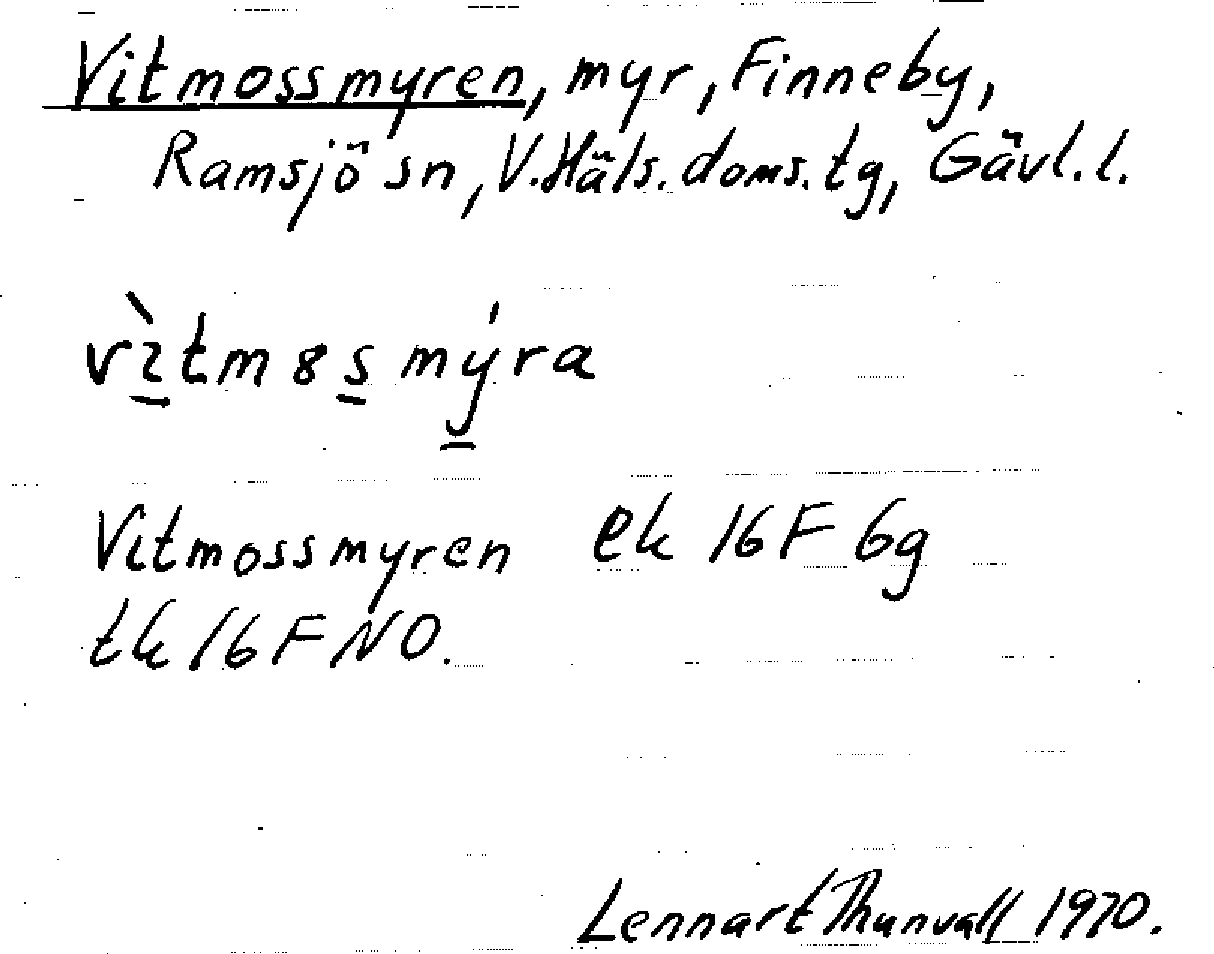 Vitmossmyren, myr, Finneby,
Ramsjö sn, V. Häls. doms. tg, Gävl. l.
vı̀tm8smýra
Vitmossmyren ek 16 F 6g
tk 16 F NO.
Lennart Thunvall 1970.